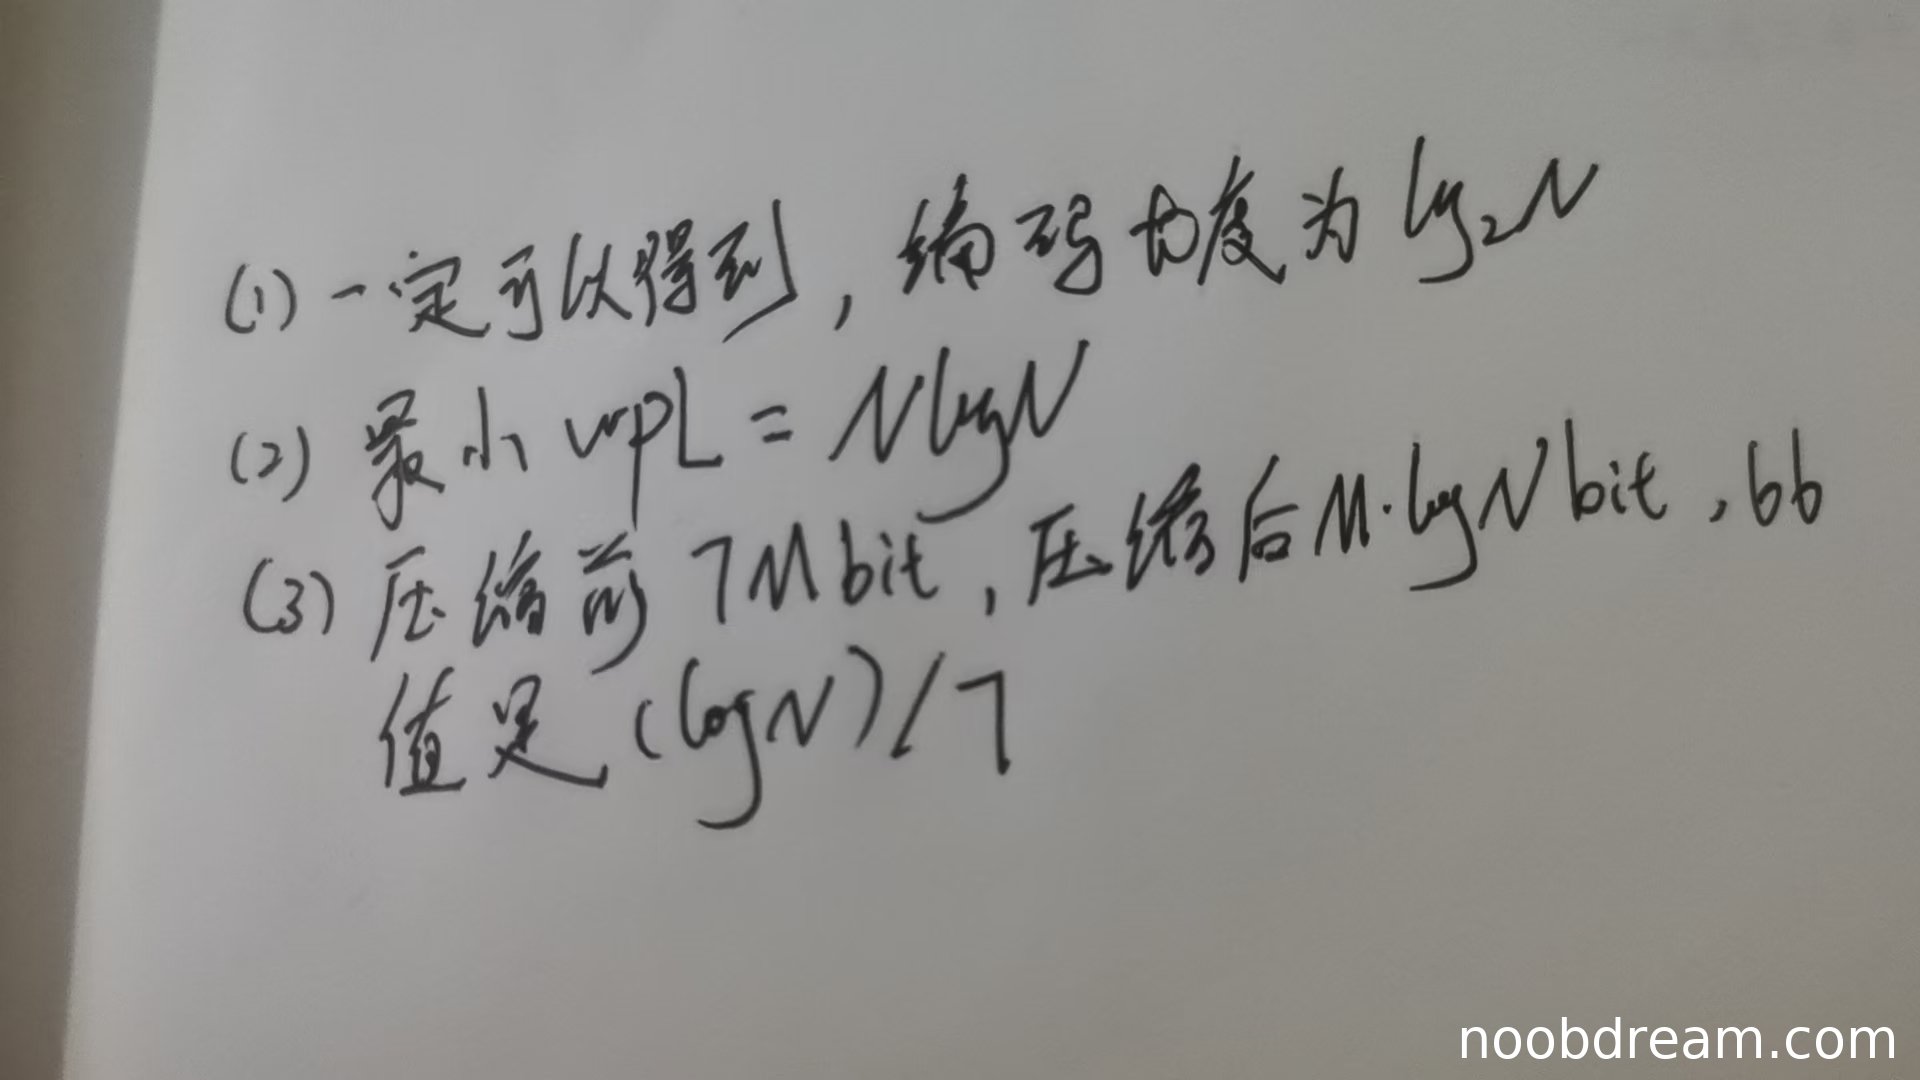 (1) 一定可以得到，编码长度为 log₂N
(2) 最小 WPL = NlogN
(3) 压缩前 7M bit，压缩后 M·logN bit，bb
值是 (logN)/7
noobdream.com